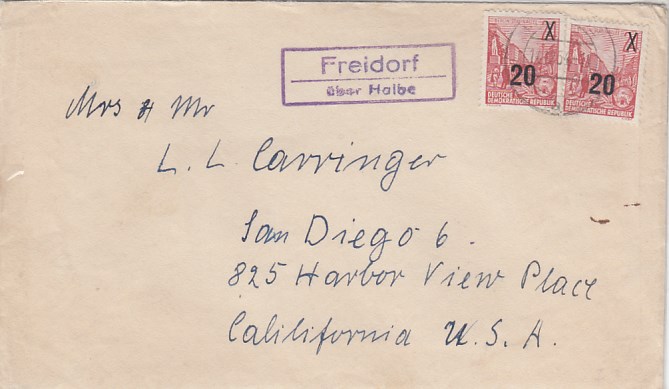 Freidorf
über Halbe
X
20
DEUTSCHE
DEMOKRATISCHE REPUBLIK
X
20
DEUTSCHE
DEMOKRATISCHE REPUBLIK
Mrs & Mr
L. L. Carringer
San Diego 6.
825 Harbor View Place
Calilifornia U.S.A.